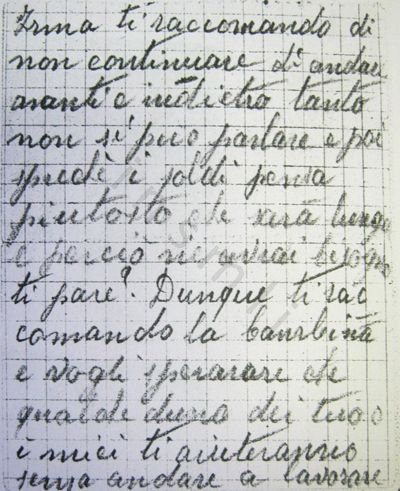 Irma ti raccomando di
non continuare di andare
avanti e indietro tanto
non si puo parlare e poi
spedè i soldi pensa
piutosto che sarà lungo
e perciò ne avrai bisogno
ti pare? Dunque ti rac
comando la bambina
e vogli sperarare che
qualche duno dei tuoi o
i miei ti aiuteranno
senza andare a lavorare